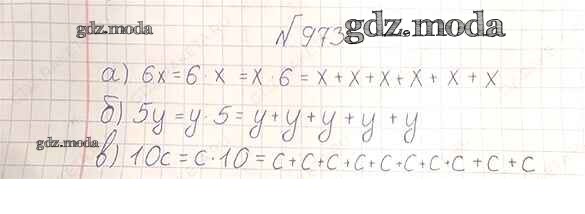 gdz.moda №973 gdz.moda
а) 6x = 6 · x = x · 6 = x + x + x + x + x + x
б) 5y = y · 5 = y + y + y + y + y
gdz.moda
в) 10c = c · 10 = c + c + c + c + c + c + c + c + c + c